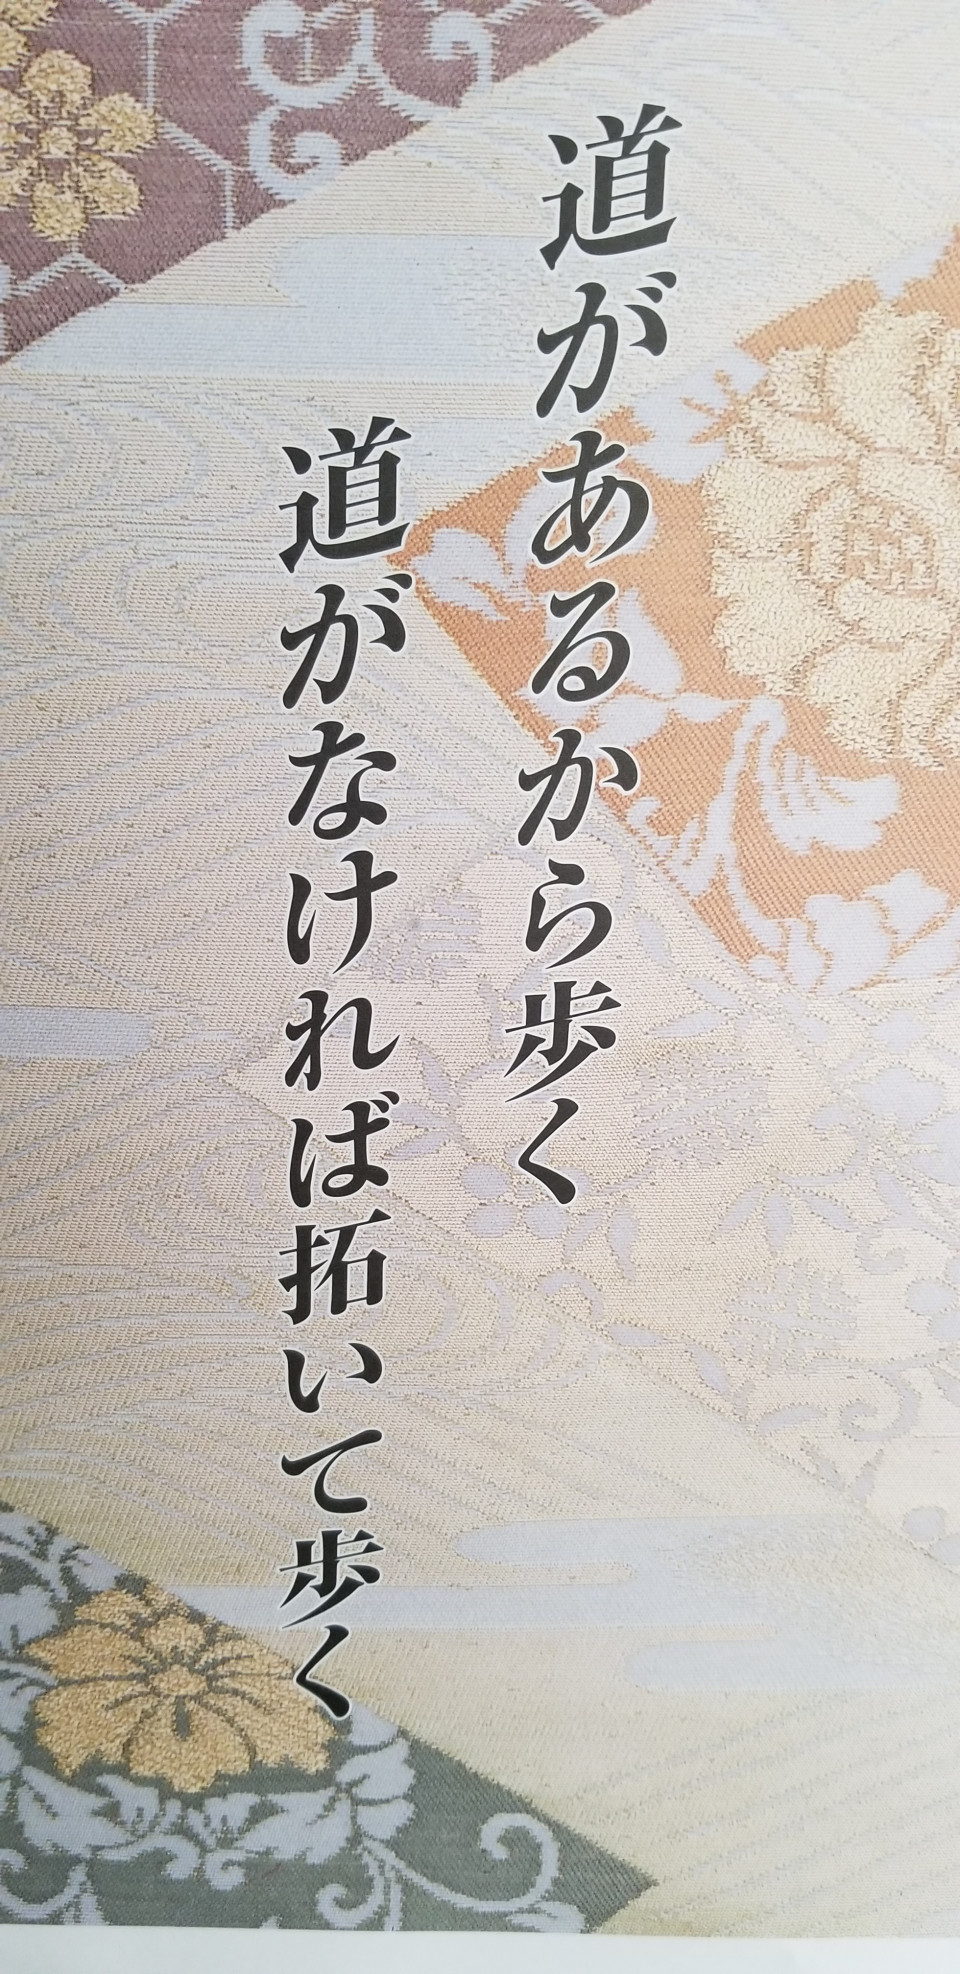 道があるから歩く
道がなければ拓いて歩く